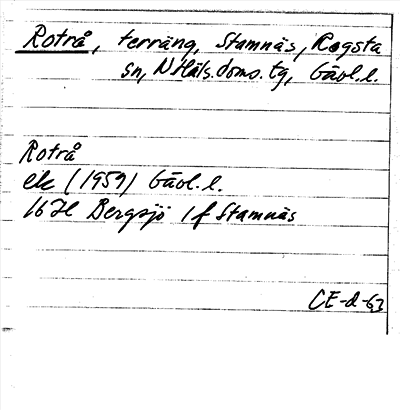 Rotrå, terräng, Stamnäs, Rogsta
sn, N Häls. doms. tg, Gävl. l.
Rotrå
ek (1959) Gävl. l.
16 H Bergsjö 1 f Stamnäs
CE-d-63